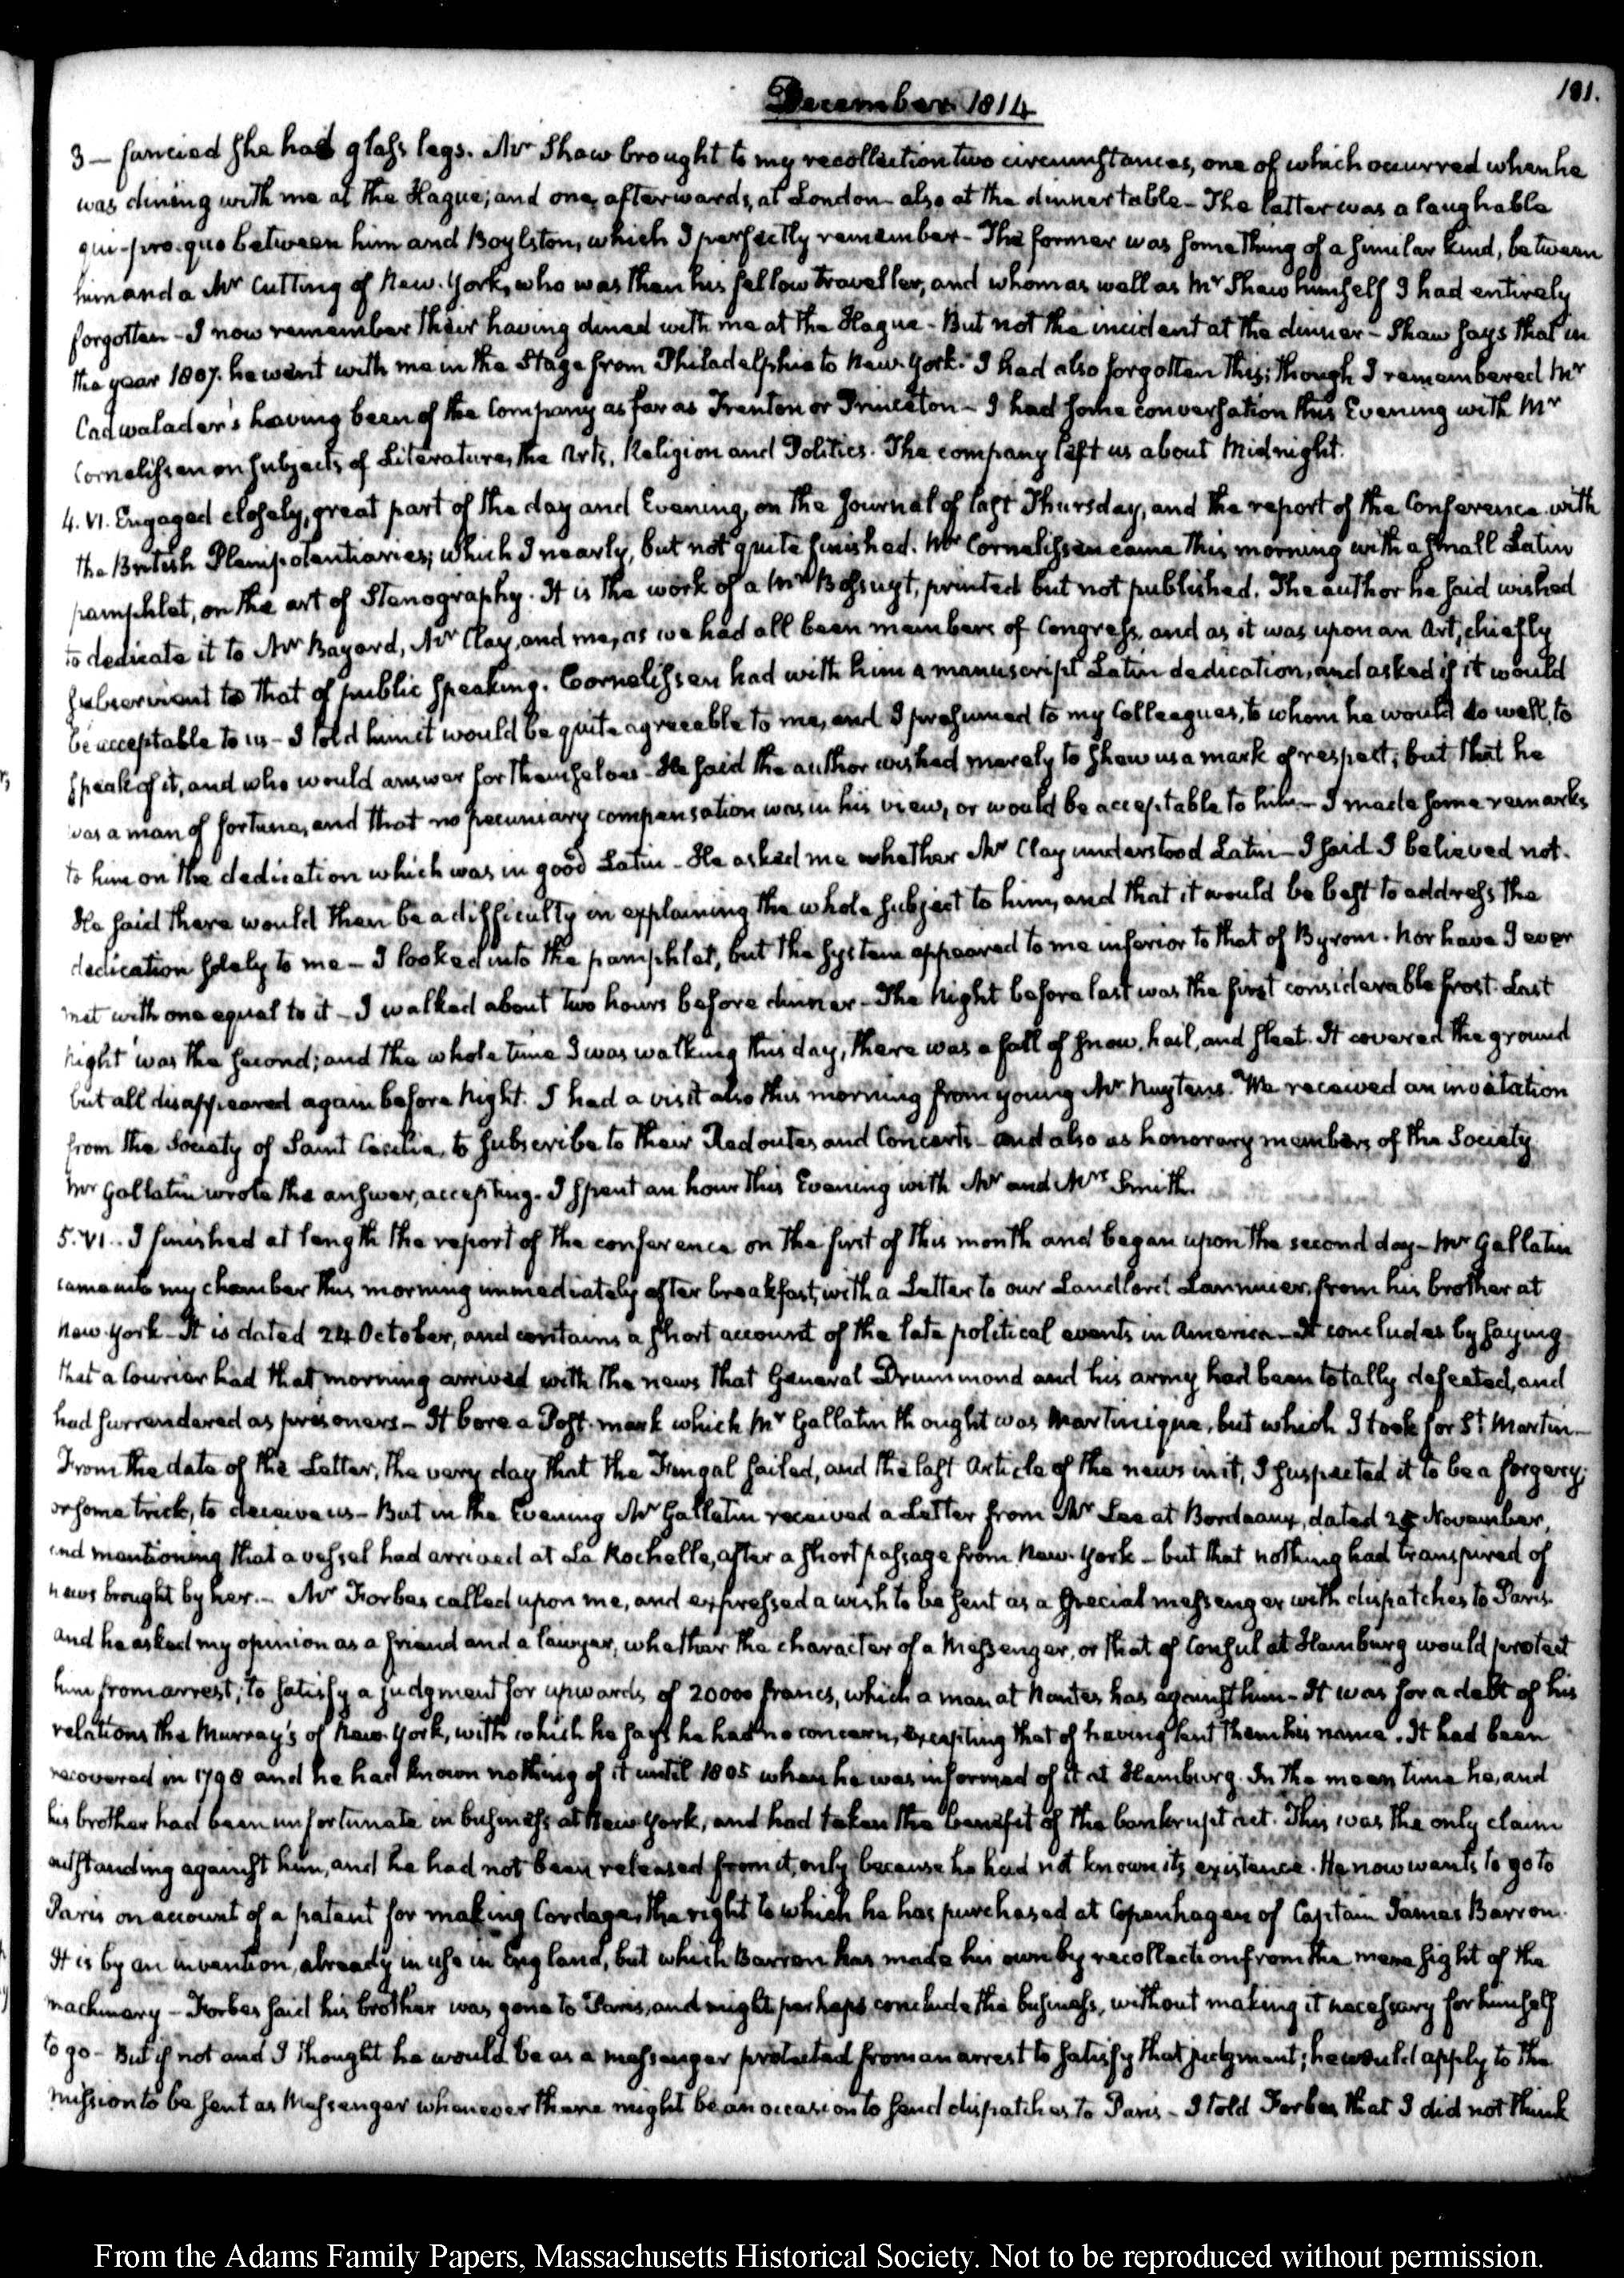 December 1814
181.
3 — fancied she had glass legs. Mr Shaw brought to my recollection two circumstances, one of which occurred when he
was dining with me at the Hague; and one, afterwards, at London also at the dinner table — The latter was a laughable
qui-pro-quo between him and Boylston, which I perfectly remember — The former was something of a similar kind, between
him and a Mr Cutting of New-York, who was then his fellow traveller, and whom as well as Mr Shaw himself I had entirely
forgotten — I now remember their having dined with me at the Hague — But not the incident at the dinner — Shaw says that in
the year 1807. he went with me in the Stage from Philadelphia to New-York. I had also forgotten this; though I remembered Mr
Cadwalader's having been of the Company as far as Trenton or Princeton — I had some conversation this Evening with Mr
Cornelissen on subjects of Literature, the Arts, Religion and Politics. The company left us about Midnight.
4. VI. Engaged closely, great part of the day and Evening, on the Journal of last Thursday, and the report of the Conference with
the British Plenipotentiaries; which I nearly, but not quite finished. Mr Cornelissen came this morning with a small Latin
pamphlet, on the art of Stenography. It is the work of a Mr Bossuyt, printed but not published. The author he said wished
to dedicate it to Mr Bayard, Mr Clay, and me, as we had all been members of Congress, and as it was upon an Art, chiefly
subservient to that of public speaking. Cornelissen had with him a manuscript Latin dedication, and asked if it would
be acceptable to us — I told him it would be quite agreeable to me, and I presumed to my Colleagues, to whom he would do well, to
speak of it, and who would answer for themselves — He said the author wished merely to shew us a mark of respect; but that he
was a man of fortune, and that no pecuniary compensation was in his view, or would be acceptable to him — I made some remarks
to him on the dedication which was in good Latin — He asked me whether Mr Clay understood Latin — I said I believed not.
He said there would then be a difficulty in explaining the whole subject to him, and that it would be best to address the
dedication solely to me — I looked into the pamphlet, but the system appeared to me inferior to that of Byrom. Nor have I ever
met with one equal to it — I walked about two hours before dinner — The Night before last was the first considerable frost. Last
Night was the second; and the whole time I was walking this day, there was a fall of snow, hail, and sleet. It covered the ground
but all disappeared again before Night. I had a visit also this morning from young Mr Nuytens. We received an invitation
from the Society of Saint Cecilia, to subscribe to their Redoutes and Concerts — and also as honorary members of the Society
Mr Gallatin wrote the answer, accepting. I spent an hour this Evening with Mr and Mrs Smith.
5. VI.. I finished at length the report of the conference on the first of this month and began upon the second day — Mr Gallatin
came into my chamber this morning immediately after breakfast, with a Letter to our Landlord Lannuier, from his brother at
New-York — It is dated 24 October, and contains a short account of the late political events in America — It concludes by saying
that a Courier had that morning arrived with the news that General Drummond and his army had been totally defeated, and
had surrendered as prisoners — It bore a Post-mark which Mr Gallatin thought was Martinique, but which I took for St Martin —
From the date of the Letter, the very day that the Fingal sailed, and the last Article of the news in it, I suspected it to be a forgery;
or some trick, to deceive us — But in the Evening Mr Gallatin received a Letter from Mr Lee at Bordeaux, dated 25 November,
and mentioning that a vessel had arrived at La Rochelle, after a short passage from New-York — but that nothing had transpired of
news brought by her. — Mr Forbes called upon me, and expressed a wish to be sent as a special messenger with dispatches to Paris.
and he asked my opinion as a friend and a lawyer, whether the character of a Messenger, or that of Consul at Hamburg would protect
him from arrest, to satisfy a judgment for upwards of 20000 francs, which a man at Nantes has against him — It was for a debt of his
relations the Murray's of New-York, with which he says he had no concern, excepting that of having lent them his name. It had been
recovered in 1798 and he had known nothing of it until 1805 when he was informed of it at Hamburg. In the mean time he, and
his brother had been unfortunate in business at New-York, and had taken the benefit of the bankrupt act. This was the only claim
outstanding against him, and he had not been released from it, only because he had not known its existence. He now wants to go to
Paris on account of a patent for making Cordage, the right to which he has purchased at Copenhagen of Captain James Barron.
It is by an invention, already in use in England, but which Barron has made his own by recollection from the mere sight of the
machinery — Forbes said his brother was gone to Paris, and might perhaps conclude the business, without making it necessary for himself
to go — But if not and I thought he would be as a messenger protected from an arrest to satisfy that judgment; he would apply to the
mission to be sent as Messenger whenever there might be an occasion to send dispatches to Paris — I told Forbes that I did not think
From the Adams Family Papers, Massachusetts Historical Society. Not to be reproduced without permission.